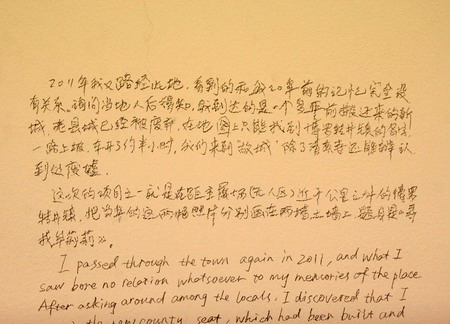 2011年我又路经此地，看到的和我20年前的记忆完全没
有关系。询问当地人后得知，我到达的是个是年前搬迁来的新
城，老县城已经被废弃，在地图上只能找到博罗转井镇的名字！
一路上坡，车开了约半小时，我们来到故城，除了清真寺还能辨认
到处废墟。
这次的项目之一就是在距金属场(无人区)近千公里之外的博罗
转井镇，把当年的这两张照片分别画在两堵土墙上，题目是《寻
找毕莉莉》。
I passed through the town again in 2011, and what I
saw bore no relation whatsoever to my memories of the place
After asking around among the locals, I discovered that I
in the new county seat, which had been built and